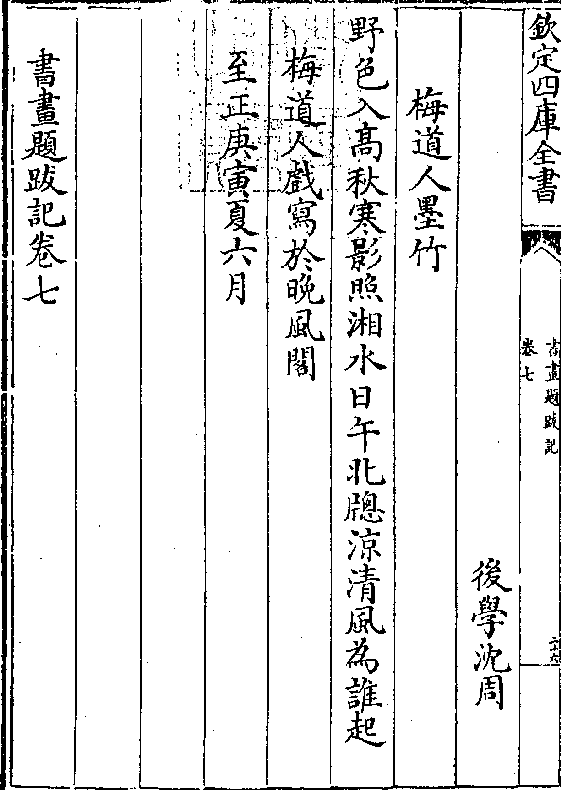 欽定四庫全書
書畫題跋記
卷七
二十六
後學沈周
梅道人墨竹
野色入髙秋寒影照湘水日午北牕凉清風為誰起
梅道人戲寫於晩風閣
至正庚寅夏六月
書畫題跋記卷七